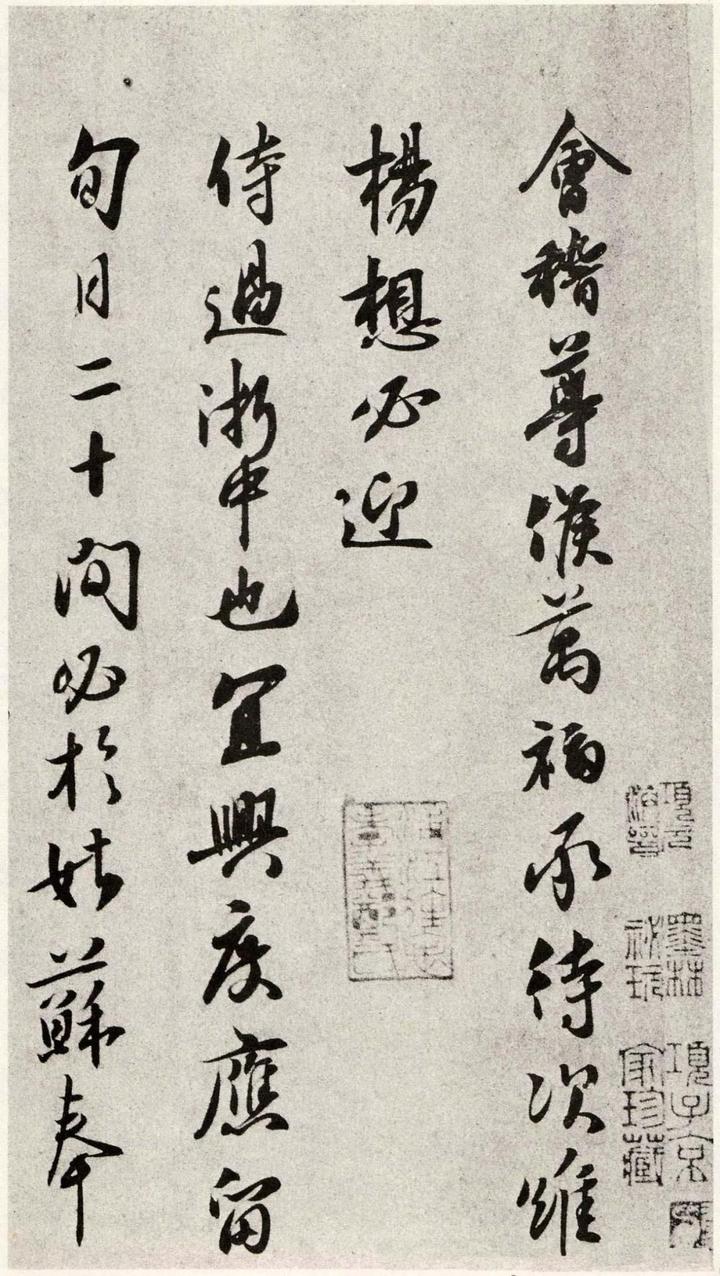 會稽尊候萬福承待次維
楊想必迎
侍過浙中也宜興度應留
旬日二十間必於姑蘇奉
墨林祕玩
項子京家珍藏